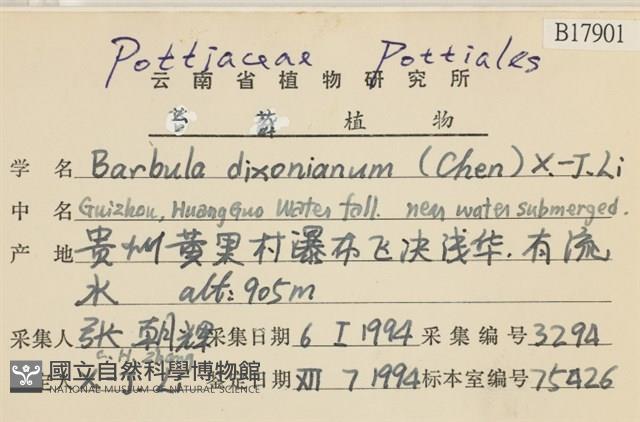 B17901
Pottiaceae Pottiales
云南省植物研究所
苔藓植物
学名 Barbula dixonianum (Chen) X.-J. Li
中名 Guizhou, Huang Guo Water fall. near water submerged.
产地 贵州黄果村瀑布飞决浅华.有流
水 alt: 905m
采集人 张朝辉 采集日期 6 I 1994 采集编号 3294
C. H. Zhang
X. J. Li 鉴定日期 XII 7 1994 标本室编号 75426
國立自然科學博物館
NATIONAL MUSEUM OF NATURAL SCIENCE